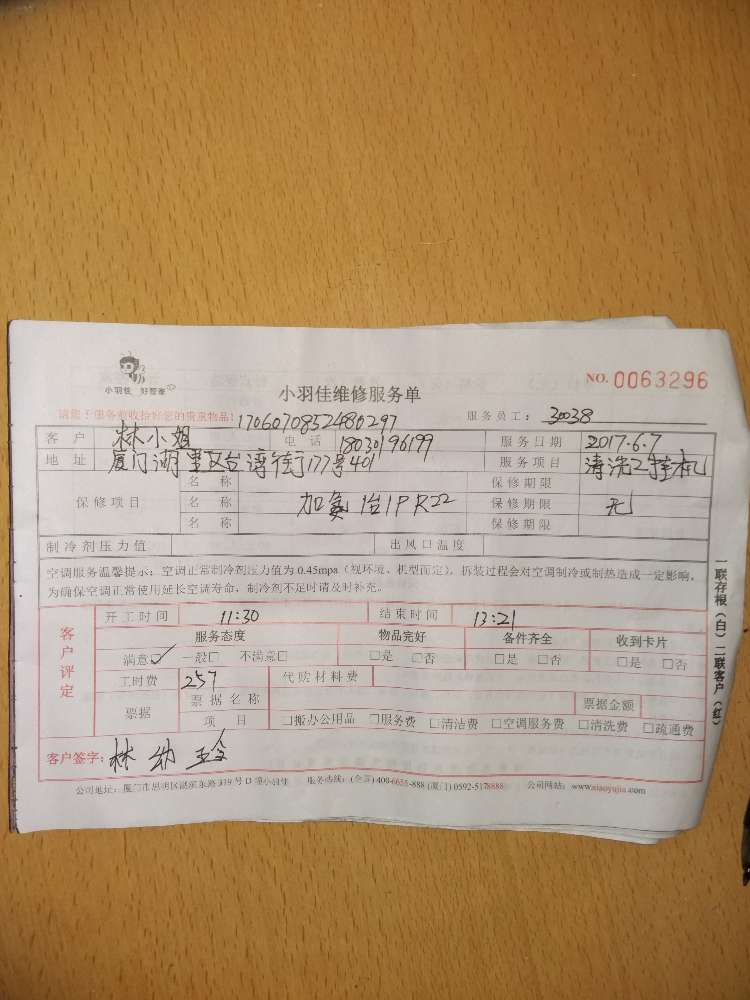 小羽佳 好管家
小羽佳维修服务单
NO. 0063296
请您于服务前收拾好您的贵重物品! 1706070852480297
服务员工: 30038
客户 林小姐 电话 18030196199 服务日期 2017.6.7
地址 厦门湖里区台湾街177号401 服务项目 清洗2挂机
保修项目 名称 保修期限
名称 加氨1台1P R22 保修期限 无
名称 保修期限
制冷剂压力值 出风口温度
空调服务温馨提示:空调正常制冷剂压力值为0.45mpa(视环境、机型而定),拆装过程会对空调制冷或制热造成一定影响,
为确保空调正常使用延长空调寿命,制冷剂不足时请及时补充。
客户评定
开工时间 11:30 结束时间 13:21
服务态度 物品完好 备件齐全 收到卡片
满意☑ 一般□ 不满意□ □是 □否 □是 □否 □是 □否
工时费 257 代购材料费
票据 票据名称 票据金额
项目 □搬办公用品 □服务费 □清洁费 □空调服务费 □清洗费 □疏通费
客户签字: 林幼玲
公司地址:厦门市思明区湖滨东路319号D幢小羽佳 服务热线:(全国)400-6655-888 (厦门)0592-5178888 公司网站:www.xiaoyujia.com
一联存根(白) 二联客户(红)